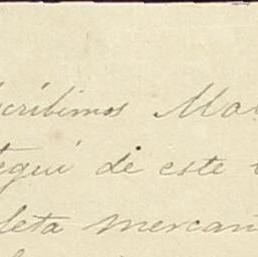 scribimos Ma
tegui de este
leta mercan